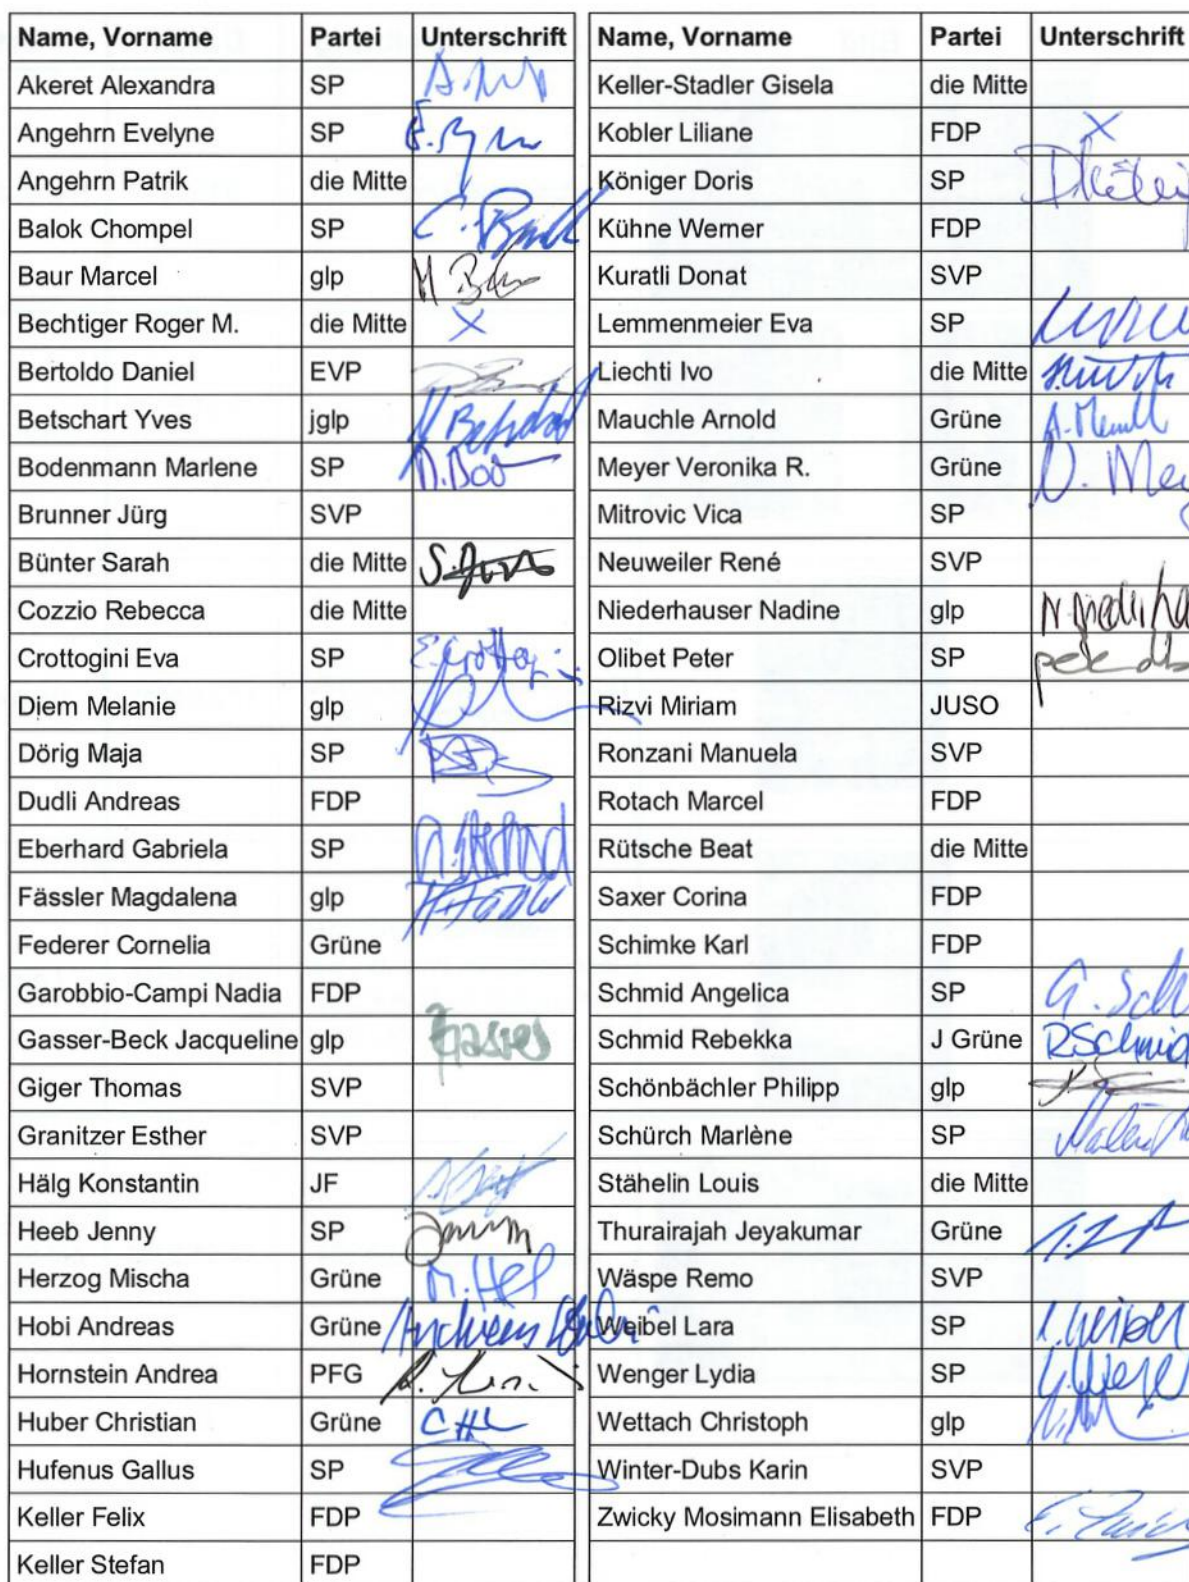 Name, Vorname Partei Unterschrift
Akeret Alexandra SP
Angehrn Evelyne SP
Angehrn Patrik die Mitte
Balok Chompel SP
Baur Marcel glp
Bechtiger Roger M. die Mitte X
Bertoldo Daniel EVP
Betschart Yves jglp
Bodenmann Marlene SP
Brunner Jürg SVP
Bünter Sarah die Mitte
Cozzio Rebecca die Mitte
Crottogini Eva SP E. Crottogini
Diem Melanie glp
Dörig Maja SP
Dudli Andreas FDP
Eberhard Gabriela SP
Fässler Magdalena glp
Federer Cornelia Grüne
Garobbio-Campi Nadia FDP
Gasser-Beck Jacqueline glp
Giger Thomas SVP
Granitzer Esther SVP
Hälg Konstantin JF
Heeb Jenny SP
Herzog Mischa Grüne
Hobi Andreas Grüne Andreas
Hornstein Andrea PFG
Huber Christian Grüne
Hufenus Gallus SP
Keller Felix FDP
Keller Stefan FDP
Name, Vorname Partei Unterschrift
Keller-Stadler Gisela die Mitte
Kobler Liliane FDP X
Königer Doris SP
Kühne Werner FDP
Kuratli Donat SVP
Lemmenmeier Eva SP
Liechti Ivo die Mitte
Mauchle Arnold Grüne
Meyer Veronika R. Grüne
Mitrovic Vica SP
Neuweiler René SVP
Niederhauser Nadine glp
Olibet Peter SP
Rizvi Miriam JUSO
Ronzani Manuela SVP
Rotach Marcel FDP
Rütsche Beat die Mitte
Saxer Corina FDP
Schimke Karl FDP
Schmid Angelica SP
Schmid Rebekka J Grüne RSchmid
Schönbächler Philipp glp
Schürch Marlène SP
Stähelin Louis die Mitte
Thurairajah Jeyakumar Grüne
Wäspe Remo SVP
Weibel Lara SP
Wenger Lydia SP
Wettach Christoph glp
Winter-Dubs Karin SVP
Zwicky Mosimann Elisabeth FDP